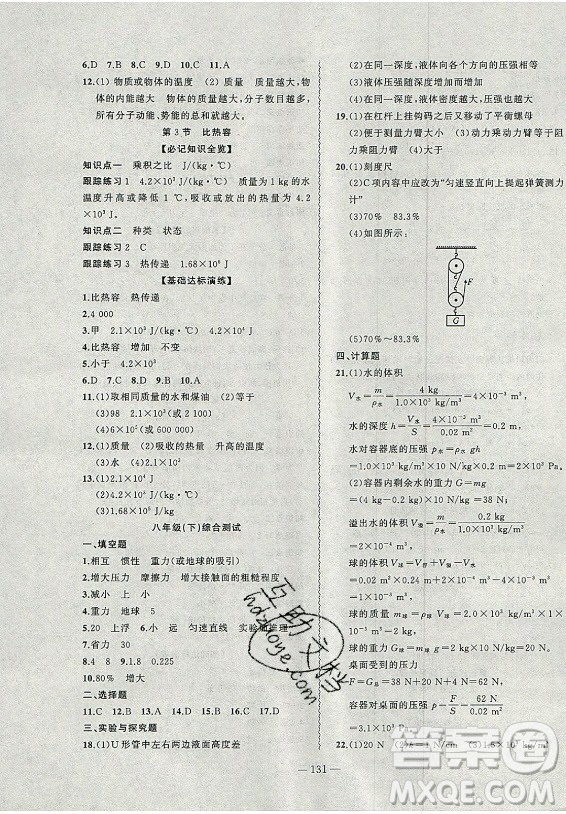 6.D 7.B 8.C 9.D 10.C 11.A
12.(1)物质或物体的温度 (2)质量 质量越大,物
体的内能越大 物体的质量越大,分子数目越多,
所有分子动能、势能的总和就越大
第3节 比热容
【必记知识全览】
知识点一 乘积之比 J/(kg·℃)
跟踪练习1 4.2×10³ J/(kg·℃) 质量为1 kg的
水温度升高或降低1 ℃,吸收或放出的热量为4.2
×10³ J
知识点二 种类 状态
跟踪练习2 C
跟踪练习3 热传递 1.68×10⁶
【基础达标演练】
1.比热容 热传递
2.4 000
3.甲 2.1×10³ J/(kg·℃) 4.2×10³ J/(kg·℃)
4.比热容 增加 不变
5.小于 4.2×10³
6.D 7.A 8.D 9.B 10.D
11.(1)取相同质量的水和煤油 (2)等于
(3)98 2.1×10³(或2 100)
(4)6×10⁵(或600000)
12.(1)质量 (2)吸收的热量 升高的温度
(3)水 (4)2.1×10³
13.(1)
(2)4.2×10³ J/(kg·℃)
(3)1.68×10⁶ J
八年级(下)综合测试
一、填空题
1.相互 惯性 重力(或地球的吸引)
2.增大压力 摩擦力 增大接触面的粗糙程度
3.减小 上 小
4.重力 地球 5
5.20 上浮 6.小 远 匀速直线 实验加推理
7.省力 30
8.4 8 9.1.8 0.225
10.80% 增大
二、选择题
11.C 12.C 13.D 14.A 15.C 16.C 17.D
三、实验与探究题
18.(1)U形管中左右两边液面高度差
(2)在同一深度,液体向各个方向的压强相等
(3)液体的压强随深度增加而增加
(4)在同一深度,液体密度越大,压强越大
19.(1)在杠杆上挂钩码之后又移动了平衡螺母
(2)便于测量力臂大小 (3)动力乘动力臂等于阻
力乘阻力臂 (4)大于
20.(1)刻度尺
(2)C项内容中应改为“匀速竖直向上提起弹簧测力
计”
(3)70% 83.3%
(4)如图所示:
F
G
(5)70%~83.3%
四、计算题
21.(1)水的体积
V水=m/ρ水=4 kg/1.0×10³ kg/m³=4×10⁻³ m³
水的深度h=V水/S=4×10⁻³ m³/0.02 m²=0.2 m
水对容器底的压强p水=ρ水gh
=1.0×10³ kg/m³×10 N/kg×0.2 m=2×10³ Pa.
(2)容器内剩余水的重力G=mg
=(4 kg-0.2 kg)×10 N/kg=38 N
溢出水的体积V水=m/ρ水=0.2 kg/1.0×10³ kg/m³
=2×10⁻⁴ m³
球的体积V球=V溢+V上
=0.02 m²×(0.24 m-0.2 m)+2×10⁻⁴ m³
=1×10⁻³ m³
球的质量m球=ρ球V球=2.0×10³ kg/m³×1×
10⁻³ m³=2 kg
球的重力G球=m球g=2 kg×10 N/kg=20 N
桌面受到的压力
F=G容+G水+G球=4 N+38 N+20 N=62 N
容器对桌面的压强p=F/S=62 N/0.02 m²
=3.1×10³ Pa
22.(1)20 N (2)k=1 N/cm
— 131 —
互助文档
hdzhome.com
答案圈
MXQE.COM